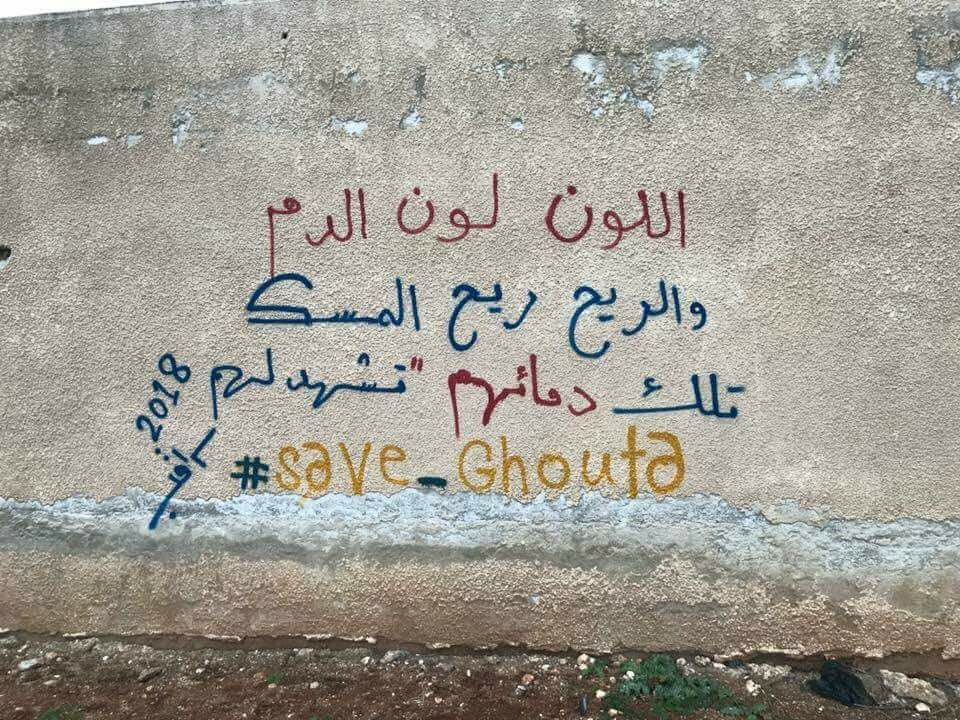 اللون لون الدم
والريح ريح المسك
تلك دمائهم "تشهد لهم
#save_Ghouta
2018